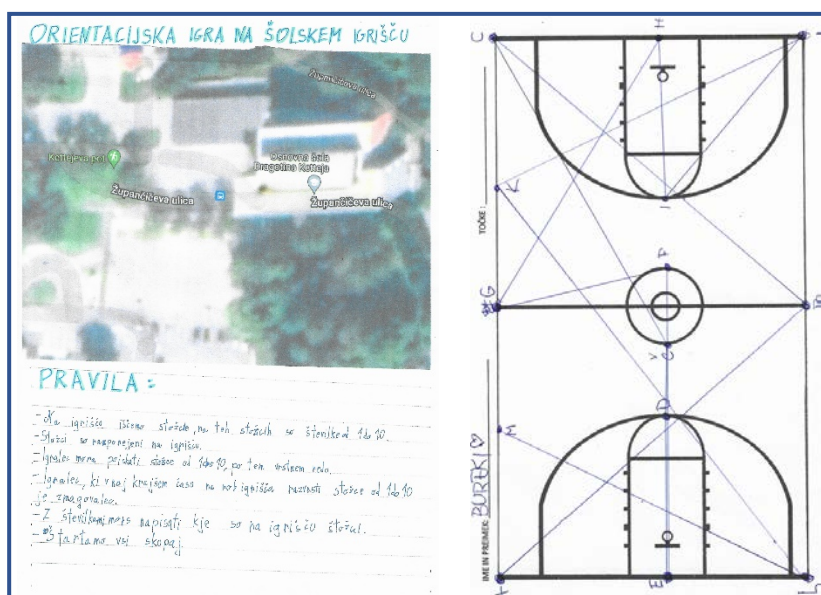 ORIENTACIJSKA IGRA NA ŠOLSKEM IGRIŠČU
Župančičeva ulica
Kettejeva pot
Osnovna šola
Dragotina Ketteja
Župančičeva ulica
Župančičeva ulica
PRAVILA:
- Na igrišču iščemo stožce, na teh stožcih so številke od 1 do 10.
- Stožci so razporejeni na igrišču.
- Igralec mora pobrati stožce od 1 do 10, po tem vrstnem redu.
- Igralec, ki v naj krajšem času na rob igrišča stožce od 1 do 10
je zmagovalec.
- Z številkami mora napisati kje so na igrišču stožci.
- Štartamo vsi skupaj.
C
H
K
TOČKE:
I
G
F
B
D
M
BUREKI
IME IN PRIIMEK:
E